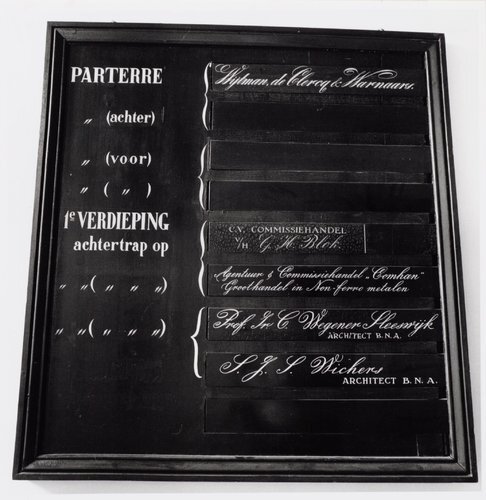 PARTERRE Wijtman, de Clercq & Warnaars.
„ (achter)
„ (voor)
„ ( „ )
1e VERDIEPING
C.V. COMMISSIEHANDEL
achtertrap op V/H G. H. Blok
Agentuur & Commissiehandel „Comhan"
„ „ ( „ „ „ ) Groothandel in Non-ferro metalen
„ „ ( „ „ „ ) Prof. Ir. C. Wegener Sleeswijk
ARCHITECT B.N.A.
S. J. S. Wichers
ARCHITECT B. N. A.